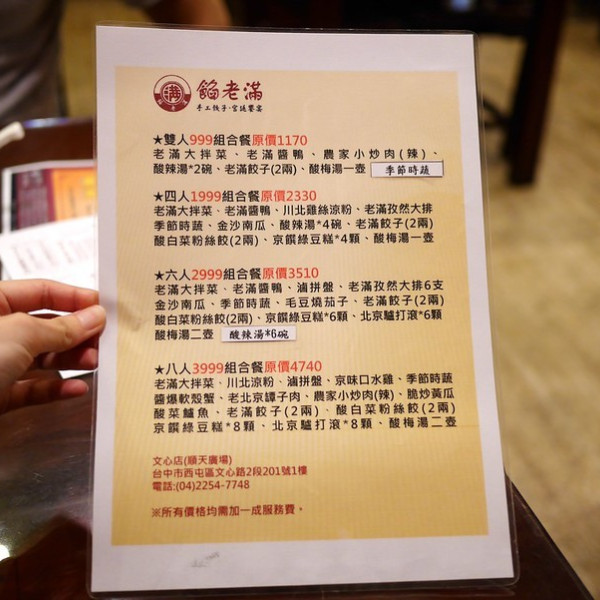 滿
餡老滿
手工餃子·宮廷饗宴
★雙人999組合餐原價1170
老滿大拌菜、老滿醬鴨、農家小炒肉(辣)、
酸辣湯*2碗、老滿餃子(2兩)、酸梅湯一壺 季節時蔬
★四人1999組合餐原價2330
老滿大拌菜、老滿醬鴨、川北雞絲涼粉、老滿孜然大排
季節時蔬、金沙南瓜、酸辣湯*4碗、老滿餃子(2兩)
酸白菜粉絲餃(2兩)、京饌綠豆糕*4顆、酸梅湯一壺
★六人2999組合餐原價3510
老滿大拌菜、老滿醬鴨、滷拼盤、老滿孜然大排6支
金沙南瓜、季節時蔬、毛豆燒茄子、老滿餃子(2兩)
酸白菜粉絲餃(2兩)、京饌綠豆糕*6顆、北京驢打滾*6顆
酸梅湯二壺 酸辣湯*6碗
★八人3999組合餐原價4740
老滿大拌菜、川北涼粉、滷拼盤、京味口水雞、季節時蔬
醬爆軟殼蟹、老北京罈子肉、農家小炒肉(辣)、脆炒黃瓜
酸菜鱸魚、老滿餃子(2兩)、酸白菜粉絲餃(2兩)
京饌綠豆糕*8顆、北京驢打滾*8顆、酸梅湯二壺
文心店(順天廣場)
台中市西屯區文心路2段201號1樓
電話:(04)2254-7748
※所有價格均需加一成服務費。